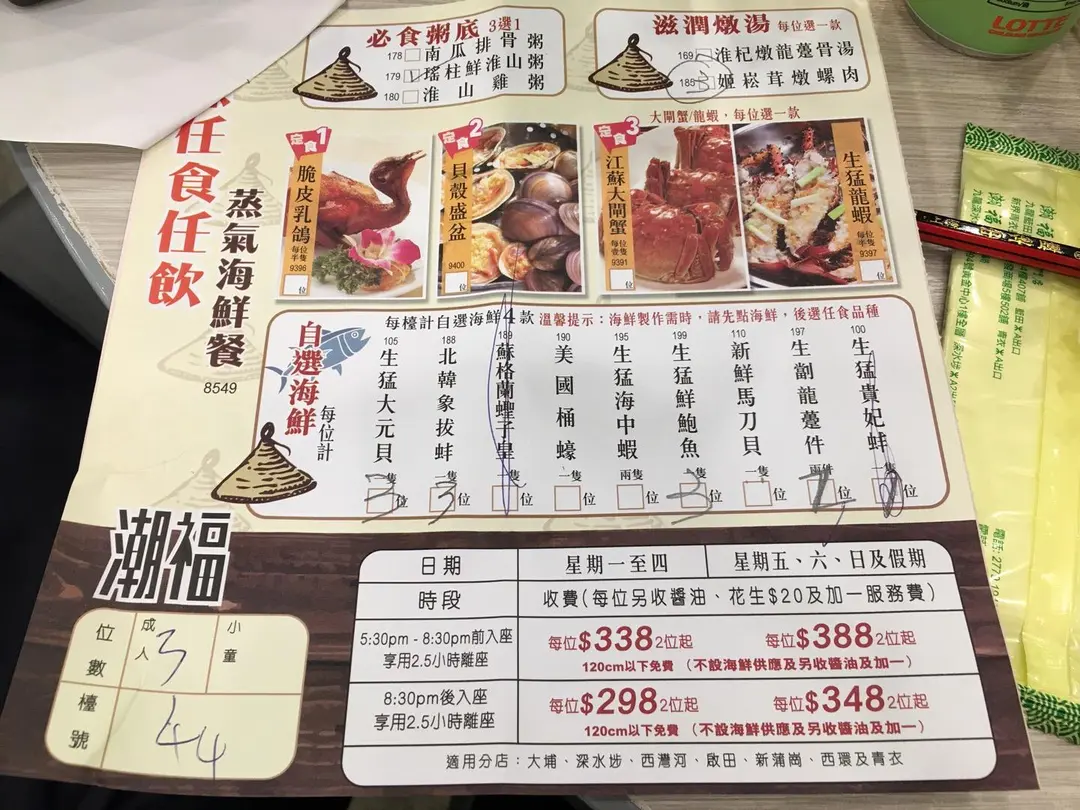 必食粥底 3選1
178 南瓜排骨粥
179 瑤柱鮮淮山粥
180 淮山雞粥
滋潤燉湯 每位選一款
169 淮杞燉龍躉骨湯
185 3 姬崧茸燉螺肉
LOTTE
任食任飲
蒸氣海鮮餐
8549
定食1
脆皮乳鴿
每位半隻
9396
位
定食2
貝殼盛盆
9400
位
大閘蟹/龍蝦，每位選一款
定食3
江蘇大閘蟹
每位壹隻
9391
位
生猛龍蝦
每位半隻
9397
位
自選海鮮
每位計
每檯計自選海鮮4款 溫馨提示：海鮮製作需時，請先點海鮮，後選任食品種
105 生猛大元貝 一隻 3 位
188 北韓象拔蚌 一隻 3 位
189 蘇格蘭蟶子皇 一隻 位
190 美國桶蠔 一隻 位
195 生猛海中蝦 兩隻 位
199 生猛鮮鮑魚 一隻 3 位
110 新鮮馬刀貝 一隻 位
197 生劏龍躉件 兩件 位
100 生猛貴妃蚌 一隻 位
潮福
位數 成人 3 小童
檯號 44
日期 星期一至四 星期五、六、日及假期
時段 收費(每位另收醬油、花生$20及加一服務費)
5:30pm - 8:30pm前入座
享用2.5小時離座
每位$338 2位起 每位$388 2位起
120cm以下免費 (不設海鮮供應及另收醬油及加一)
8:30pm後入座
享用2.5小時離座
每位$298 2位起 每位$348 2位起
120cm以下免費 (不設海鮮供應及另收醬油及加一)
適用分店：大埔、深水埗、西灣河、啟田、新蒲崗、西環及青衣
潮福